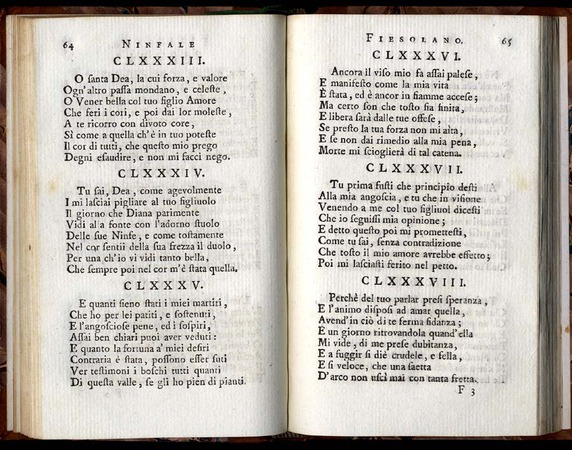 64 NINFALE
CLXXXIII.
O ſanta Dea, la cui forza, e valore
Ogn'altro paſſa mondano, e celeſte,
O Vener bella col tuo figlio Amore
Che feri i cori, e poi dai lor moleſte,
A te ricorro con divoto core,
Sì come a quella ch'è in tuo poteſte
Il cor di tutti, che queſto mio prego
Degni eſaudire, e non mi facci nego.
CLXXXIV.
Tu ſai, Dea, come agevolmente
I mi laſciai pigliare al tuo figliuolo
Il giorno che Diana parimente
Vidi alla fonte con l'adorno ſtuolo
Delle ſue Ninfe, e come toſtamente
Nel cor ſentii della ſua frezza il duolo,
Per una ch'io vi vidi tanto bella,
Che ſempre poi nel cor m'è ſtata quella.
CLXXXV.
E quanti ſieno ſtati i miei martiri,
Che ho per lei patiti, e ſoſtenuti,
E l'angoſcioſe pene, ed i ſoſpiri,
Aſſai ben chiari puoi aver veduti:
E quanto la fortuna a' miei deſiri
Contraria è ſtata, poſſono eſſer ſuti
Ver teſtimoni i boſchi tutti quanti
Di queſta valle, ſe gli ho pien di pianti.
FIESOLANO. 65
CLXXXVI.
Ancora il viſo mio fa aſſai paleſe,
E manifeſto come la mia vita
È ſtata, ed è ancor in fiamme acceſe;
Ma certo ſon che toſto fia finita,
E libera ſarà dalle tue offeſe,
Se preſto la tua forza non mi aita,
E ſe non dai rimedio alla mia pena,
Morte mi ſcioglierà di tal catena.
CLXXXVII.
Tu prima fuſti che principio deſti
Alla mia angoſcia, e tu che in viſione
Venendo a me col tuo figliuol diceſti
Che io ſeguiſſi mia opinione;
E detto queſto poi mi prometteſti,
Come tu ſai, ſenza contradizione
Che toſto il mio amore avrebbe effetto;
Poi mi laſciaſti ferito nel petto.
CLXXXVIII.
Perchè del tuo parlar preſi ſperanza,
E l'animo diſpoſi ad amar quella,
Avend'in ciò di te ferma fidanza;
E un giorno ritrovandola quand'ella
Mi vide, di me preſe dubitanza,
E a fuggir ſi diè crudele, e fella,
E ſì veloce, che una ſaetta
D'arco non uſcì mai con tanta fretta.
F 3